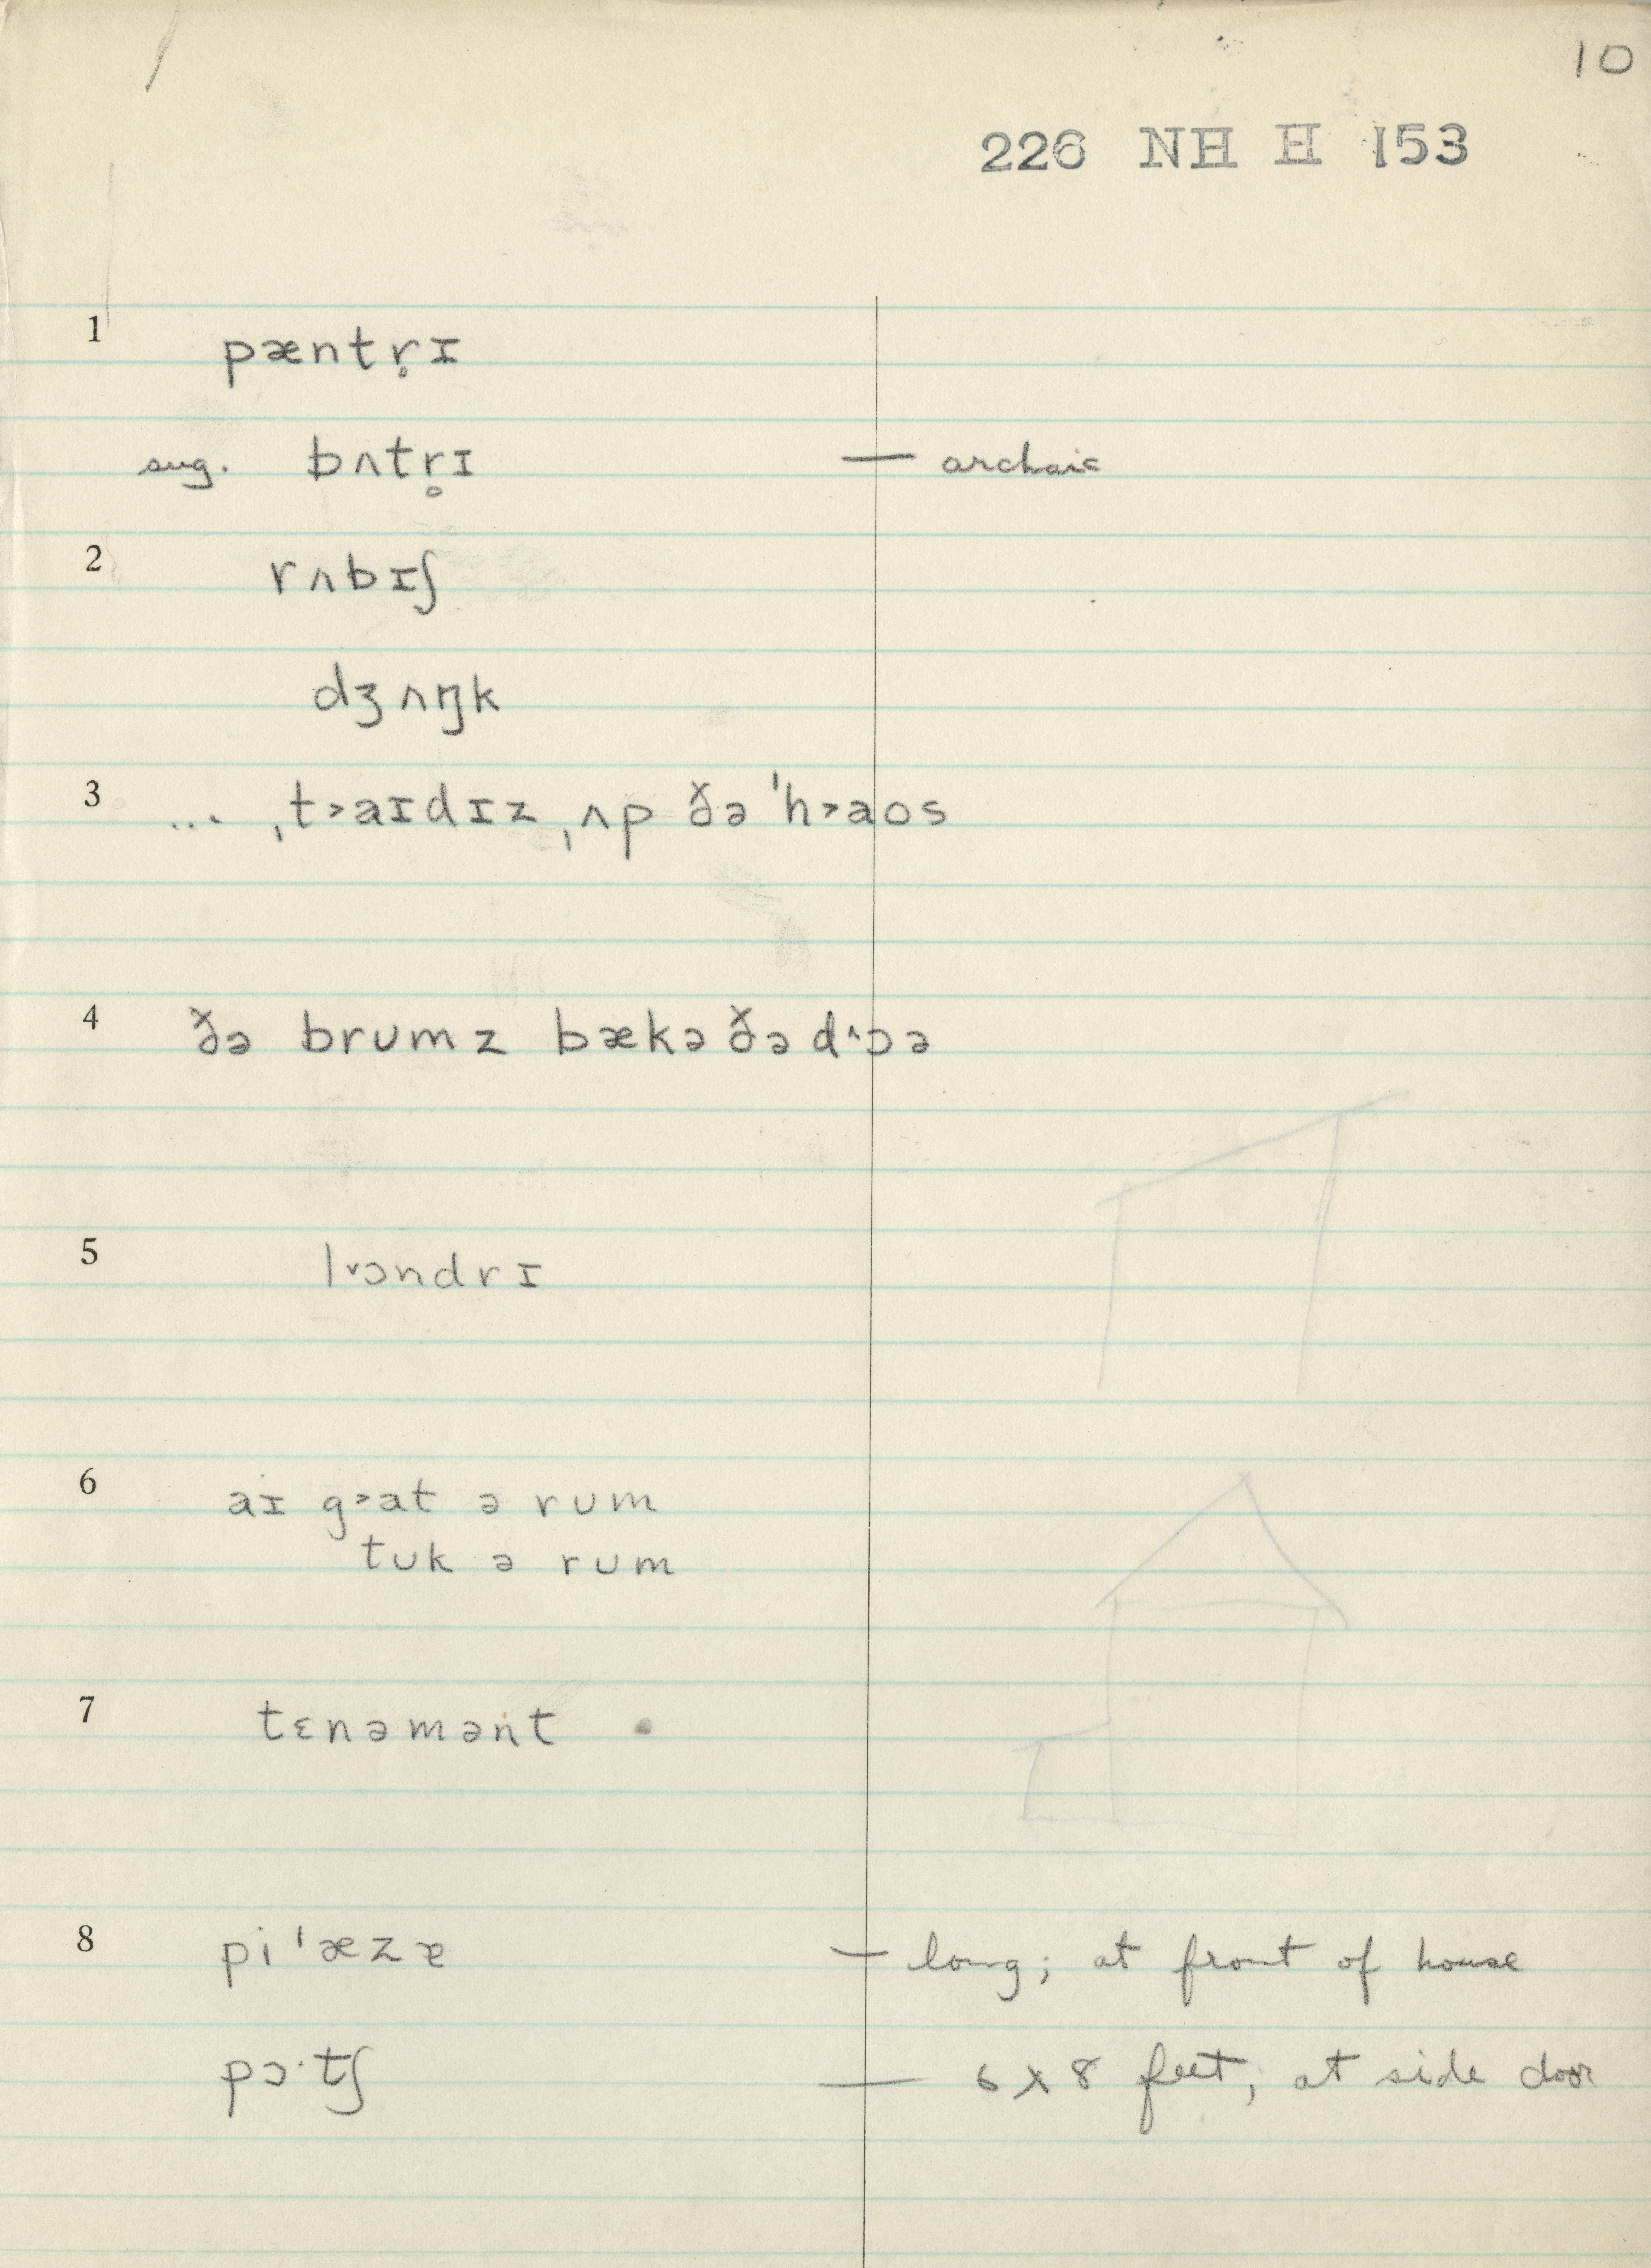 10
226 NH H 153
1 pæntr̥ɪ
sug. bʌtr̥ɪ — archaic
2 rʌbɪʃ
dʒʌŋk
3 ... ˌt˃aɪdɪz ˌʌp ðə ˈh˃aʊs
4 ðə brumz bækə ðə d˄ɔə
5 l˅ɔndrɪ
6 aɪ g˃at ə rum
tuk ə rum
7 tɛnəmənt
8 piˈæzɐ — long; at front of house
pɔ·tʃ — 6 x 8 feet; at side door